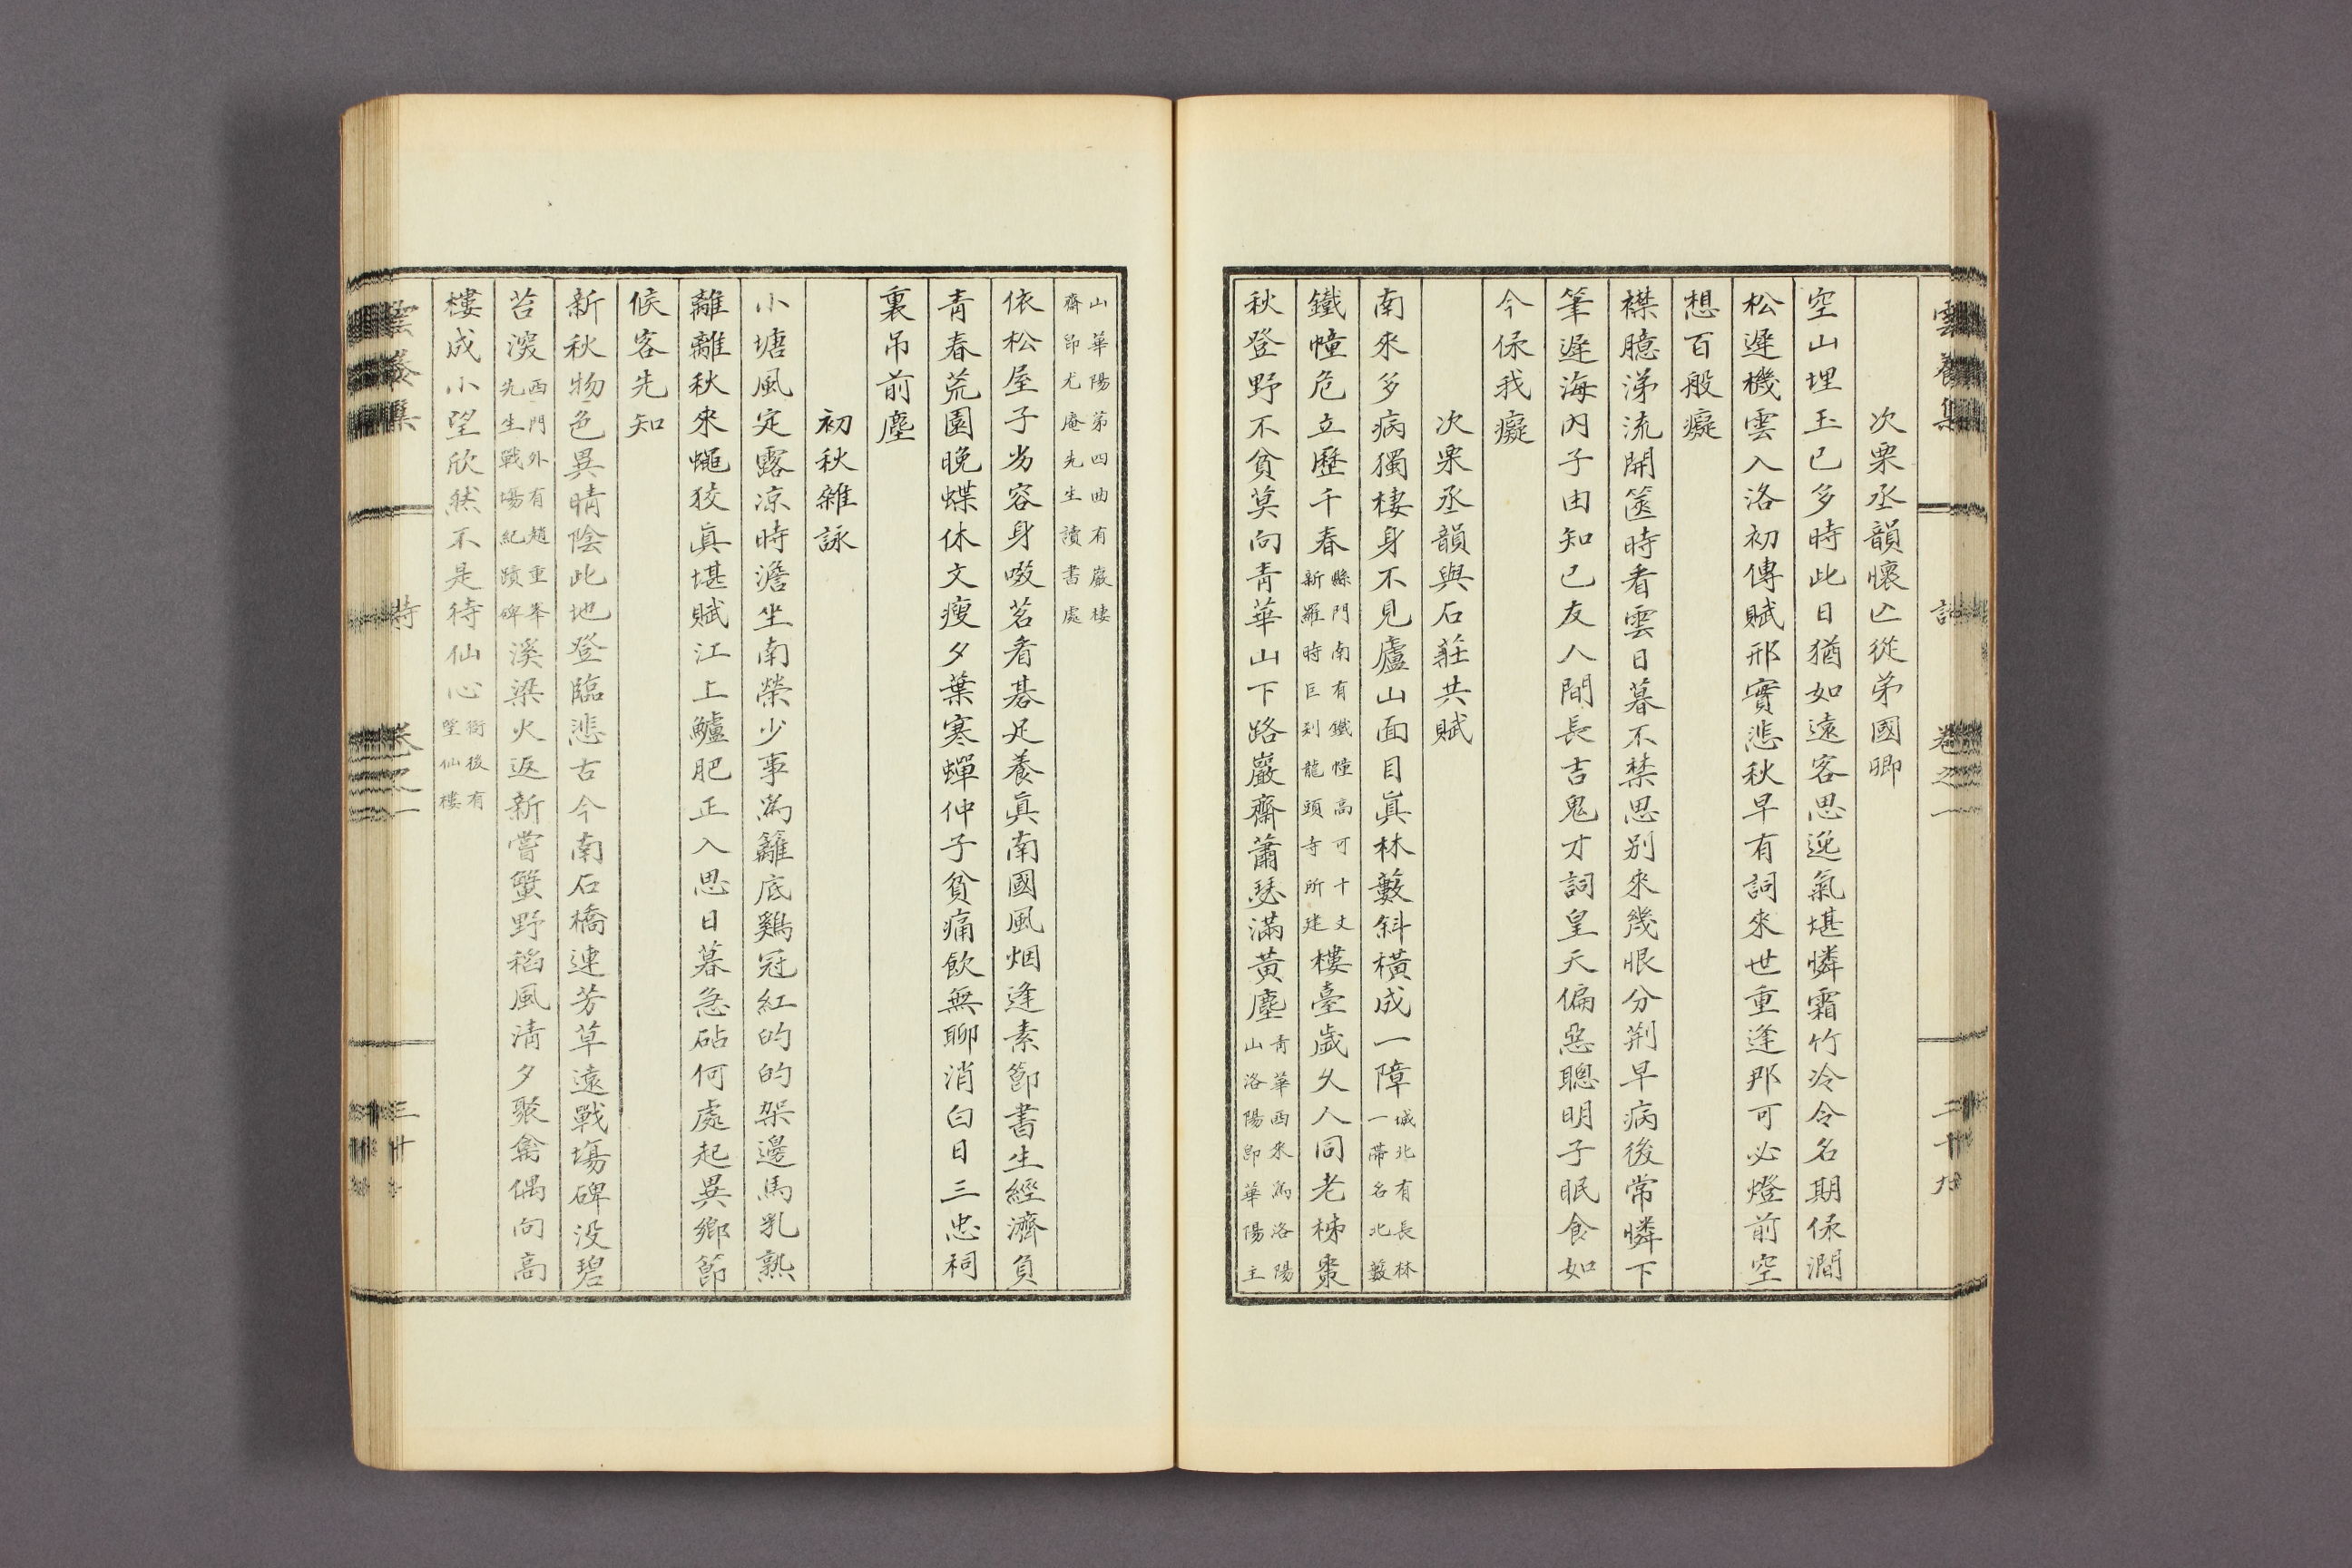 雲養集 詩 卷之一 二十九
次栗丞韻懷亾從弟國卿
空山埋玉已多時此日猶如遠客思逸氣堪憐霜竹冷令名期保澗
松遲機雲入洛初傳賦邢實悲秋早有詞來世重逢那可必燈前空
想百般癡
襟臆涕流開篋時看雲日暮不禁思別來幾恨分荆早病後常憐下
筆遲海內子由知己友人間長吉鬼才詞皇天偏惡聰明子眠食如
今保我癡
次栗丞韻與石莊共賦
南來多病獨棲身不見廬山面目眞林藪斜橫成一障城北有長林一帶名北藪
鐵幢危立歷千春縣門南有鐵幢高可十丈新羅時巨刹龍頭寺所建樓臺歲久人同老梯棗
秋登野不貧莫向青華山下路巖齋蕭瑟滿黃塵青華西來爲洛陽山洛陽卽華陽主
山華陽第四曲有巖棲齋卽尤庵先生讀書處
依松屋子劣容身啜茗看碁足養眞南國風烟逢素節書生經濟負
青春荒園晚蝶休文瘦夕葉寒蟬仲子貧痛飮無聊消白日三忠祠
裏吊前塵
初秋雜詠
小塘風定露凉時澹坐南榮少事爲籬底鷄冠紅的的架邊馬乳熟
離離秋來蠅狡眞堪賦江上鱸肥正入思日暮急砧何處起異鄕節
候客先知
新秋物色異晴陰此地登臨悲古今南石橋連芳草遠戰塲碑沒碧
苔深西門外有趙重峯先生戰塲紀蹟碑溪梁火返新嘗蟹野稻風淸夕聚禽偶向高
樓成小望欣然不是待仙心衙後有望仙樓
雲養集 詩 卷之一 三十